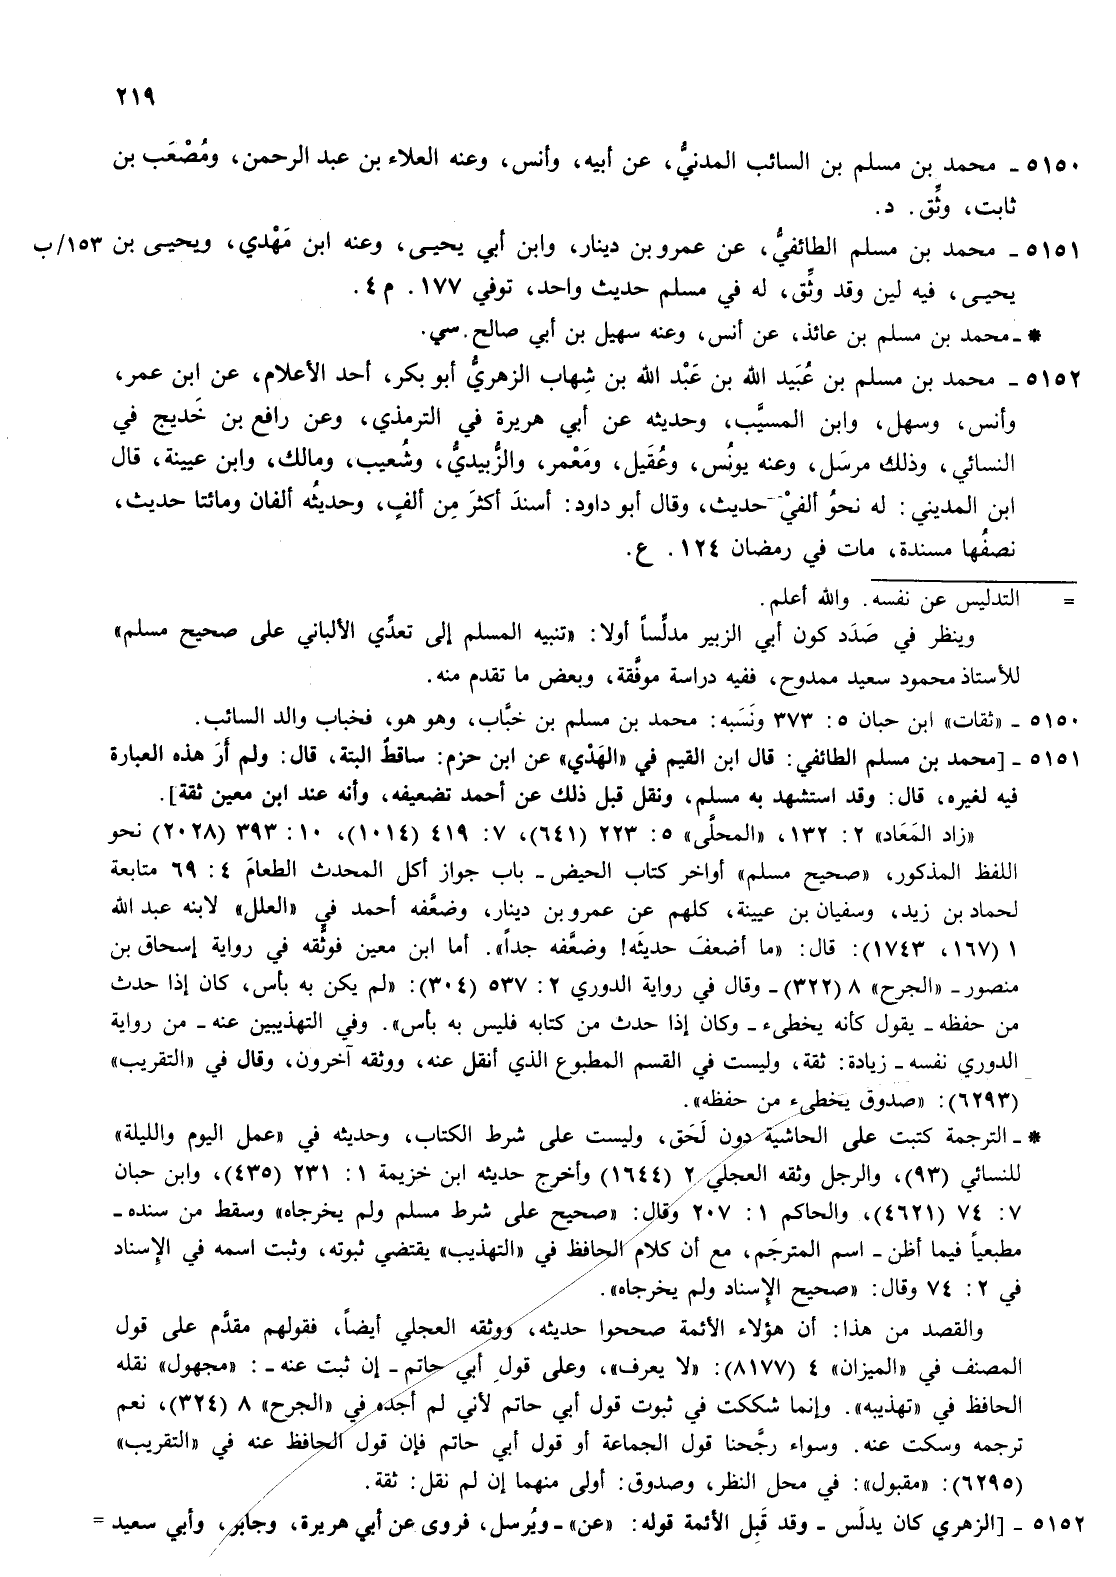 ٢١٩
٥١٥٠ ـ محمد بن مسلم بن السائب المدنيُّ، عن أبيه، وأنس، وعنه العلاء بن عبد الرحمن، ومُصْعَب بن
ثابت، وثِّق. د.
٥١٥١ ـ محمد بن مسلم الطائفيُّ، عن عمرو بن دينار، وابن أبي يحيـى، وعنه ابن مَهْدي، ويحيـى بن ١٥٣/ب
يحيـى، فيه لين وقد وثِّق، له في مسلم حديث واحد، توفي ١٧٧. م ٤.
* ـ محمد بن مسلم بن عائذ، عن أنس، وعنه سهيل بن أبي صالح. سي.
٥١٥٢ ـ محمد بن مسلم بن عُبَيد الله بن عَبْد الله بن شِهاب الزهريُّ أبو بكر، أحد الأعلام، عن ابن عمر،
وأنس، وسهل، وابن المسيَّب، وحديثه عن أبي هريرة في الترمذي، وعن رافع بن خَديج في
النسائي، وذلك مرسَل، وعنه يونُس، وعُقَيل، ومَعْمر، والزُّبيديُّ، وشُعيب، ومالك، وابن عيينة، قال
ابن المديني: له نحوُ ألفيْ حديث، وقال أبو داود: أسندَ أكثرَ مِن ألفٍ، وحديثُه ألفان ومائتا حديث،
نصفُها مسندة، مات في رمضان ١٢٤. ع.
= التدليس عن نفسه. والله أعلم.
وينظر في صَدَد كون أبي الزبير مدلِّساً أولا: «تنبيه المسلم إلى تعدِّي الألباني على صحيح مسلم»
للأستاذ محمود سعيد ممدوح، ففيه دراسة موفَّقة، وبعض ما تقدم منه.
٥١٥٠ ـ «ثقات» ابن حبان ٥: ٣٧٣ ونَسَبه: محمد بن مسلم بن خبَّاب، وهو هو، فخباب والد السائب.
٥١٥١ ـ [محمد بن مسلم الطائفي: قال ابن القيم في «الهَدْي» عن ابن حزم: ساقطٌ البتة، قال: ولم أرَ هذه العبارة
فيه لغيره، قال: وقد استشهد به مسلم، ونقل قبل ذلك عن أحمد تضعيفه، وأنه عند ابن معين ثقة].
«زاد المَعَاد» ٢: ١٣٢، «المحلَّى» ٥: ٢٢٣ (٦٤١)، ٧: ٤١٩ (١٠١٤)، ١٠: ٣٩٣ (٢٠٢٨) نحو
اللفظ المذكور، «صحيح مسلم» أواخر كتاب الحيض ـ باب جواز أكل المحدث الطعامَ ٤: ٦٩ متابعة
لحماد بن زيد، وسفيان بن عيينة، كلهم عن عمرو بن دينار، وضعَّفه أحمد في «العلل» لابنه عبد الله
١ (١٦٧، ١٧٤٣): قال: «ما أضعفَ حديثَه! وضعَّفه جداً». أما ابن معين فوثَّقه في رواية إسحاق بن
منصور ـ «الجرح» ٨ (٣٢٢) ـ وقال في رواية الدوري ٢: ٥٣٧ (٣٠٤): «لم يكن به بأس، كان إذا حدث
من حفظه ـ يقول كأنه يخطىء ـ وكان إذا حدث من كتابه فليس به بأس». وفي التهذيبين عنه ـ من رواية
الدوري نفسه ـ زيادة: ثقة، وليست في القسم المطبوع الذي أنقل عنه، ووثقه آخرون، وقال في «التقريب»
(٦٢٩٣): «صدوق يخطىء من حفظه».
* ـ الترجمة كتبت على الحاشية دون لَحَق، وليست على شرط الكتاب، وحديثه في «عمل اليوم والليلة»
للنسائي (٩٣)، والرجل وثقه العجلي ٢ (١٦٤٤) وأخرج حديثه ابن خزيمة ١: ٢٣١ (٤٣٥)، وابن حبان
٧: ٧٤ (٤٦٢١)، والحاكم ١: ٢٠٧ وقال: «صحيح على شرط مسلم ولم يخرجاه» وسقط من سنده ـ
مطبعياً فيما أظن ـ اسم المترجَم، مع أن كلام الحافظ في «التهذيب» يقتضي ثبوته، وثبت اسمه في الإسناد
في ٢: ٧٤ وقال: «صحيح الإسناد ولم يخرجاه».
والقصد من هذا: أن هؤلاء الأئمة صححوا حديثه، ووثقه العجلي أيضاً، فقولهم مقدَّم على قول
المصنف في «الميزان» ٤ (٨١٧٧): «لا يعرف»، وعلى قول أبي حاتم ـ إن ثبت عنه ـ: «مجهول» نقله
الحافظ في «تهذيبه». وإنما شككت في ثبوت قول أبي حاتم لأني لم أجده في «الجرح» ٨ (٣٢٤)، نعم
ترجمه وسكت عنه. وسواء رجَّحنا قول الجماعة أو قول أبي حاتم فإن قول الحافظ عنه في «التقريب»
(٦٢٩٥): «مقبول»: في محل النظر، وصدوق: أولى منهما إن لم نقل: ثقة.
٥١٥٢ ـ [الزهري كان يدلّس ـ وقد قَبِل الأئمة قوله: «عن» ـ ويُرسل، فروى عن أبي هريرة، وجابر، وأبي سعيد =